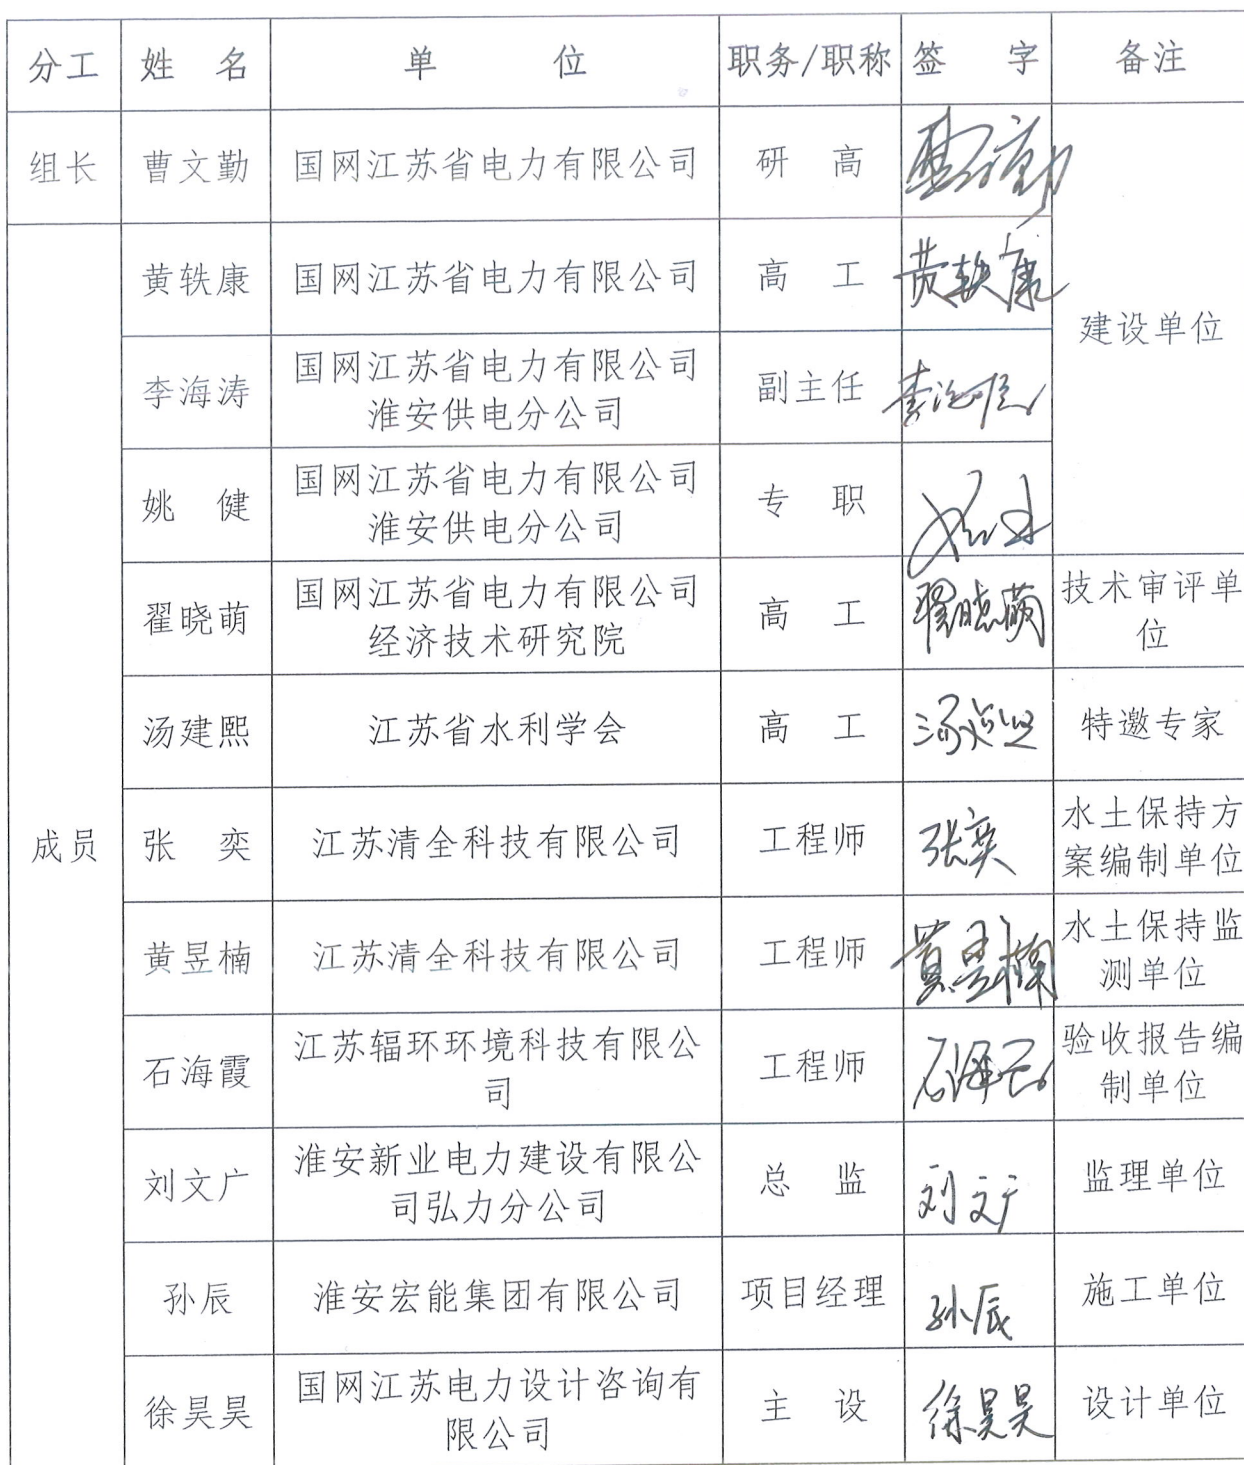 分工 姓 名 单 位 职务/职称 签 字 备注
组长 曹文勤 国网江苏省电力有限公司 研 高
黄轶康 国网江苏省电力有限公司 高 工 黄轶康
建设单位
李海涛 国网江苏省电力有限公司
淮安供电分公司 副主任
姚 健 国网江苏省电力有限公司
淮安供电分公司 专 职
翟晓萌 国网江苏省电力有限公司
经济技术研究院 高 工 翟晓萌 技术审评单
位
汤建熙 江苏省水利学会 高 工 特邀专家
成员 张 奕 江苏清全科技有限公司 工程师 张奕 水土保持方
案编制单位
黄昱楠 江苏清全科技有限公司 工程师 黄昱楠 水土保持监
测单位
石海霞 江苏辐环环境科技有限公
司 工程师 验收报告编
制单位
刘文广 淮安新业电力建设有限公
司弘力分公司 总 监 刘文广 监理单位
孙辰 淮安宏能集团有限公司 项目经理 孙辰 施工单位
徐昊昊 国网江苏电力设计咨询有
限公司 主 设 徐昊昊 设计单位